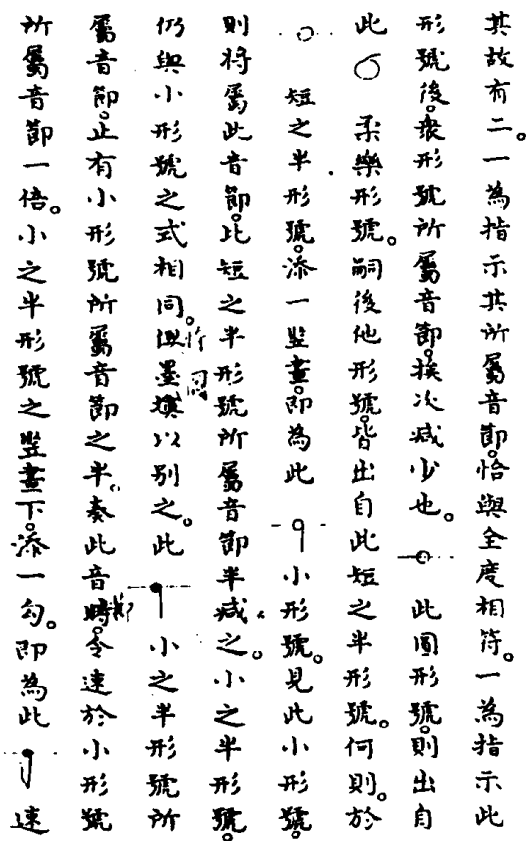 其故有二。一為指示其所屬音節。恰與全度相符。一為指示此
形號後。衆形號所屬音節。挨次減少也。此圓形號。則出自
此 柔樂形號。嗣後他形號。皆出自此短之半形號。何則。於
短之半形號。添一竪畫。即為此 小形號。見此小形號。
則將屬此音節。比短之半形號所屬音節半減之。小之半形號。
仍與小形號之式相同。但墨填以別之。此 小之半形號所
屬音節。止有小形號所屬音節之半。奏此音時。令速於小形號
所屬音節一倍。小之半形號之竪畫下。添一勾。即為此 速